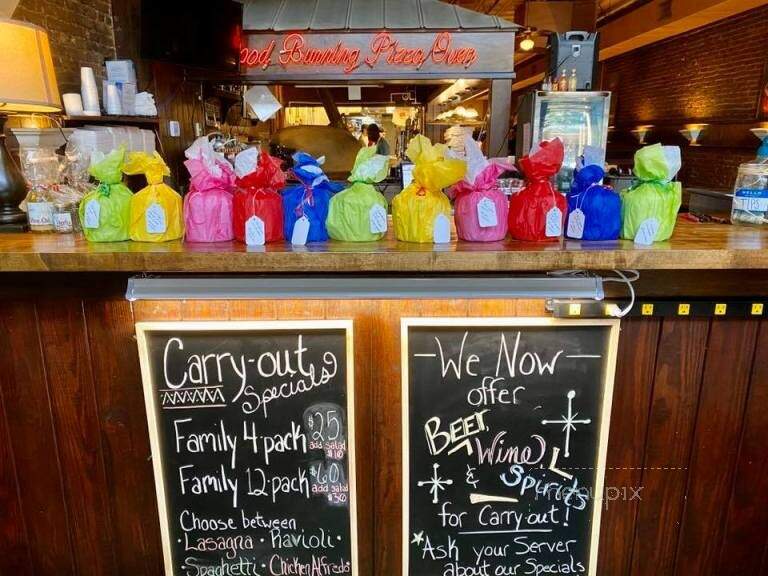 ood Burning Pizza Oven
TIPS
Carry-out
Specials
Family 4-pack $25
add salad
$10
Family 12-pack $60
add salad
$30
Choose between
• Lasagna • Ravioli •
• Spaghetti • Chicken Alfredo
We Now
offer
BEER,
Wine
& Spirits
for Carry-out!
Ask your Server
about our Specials
menupix